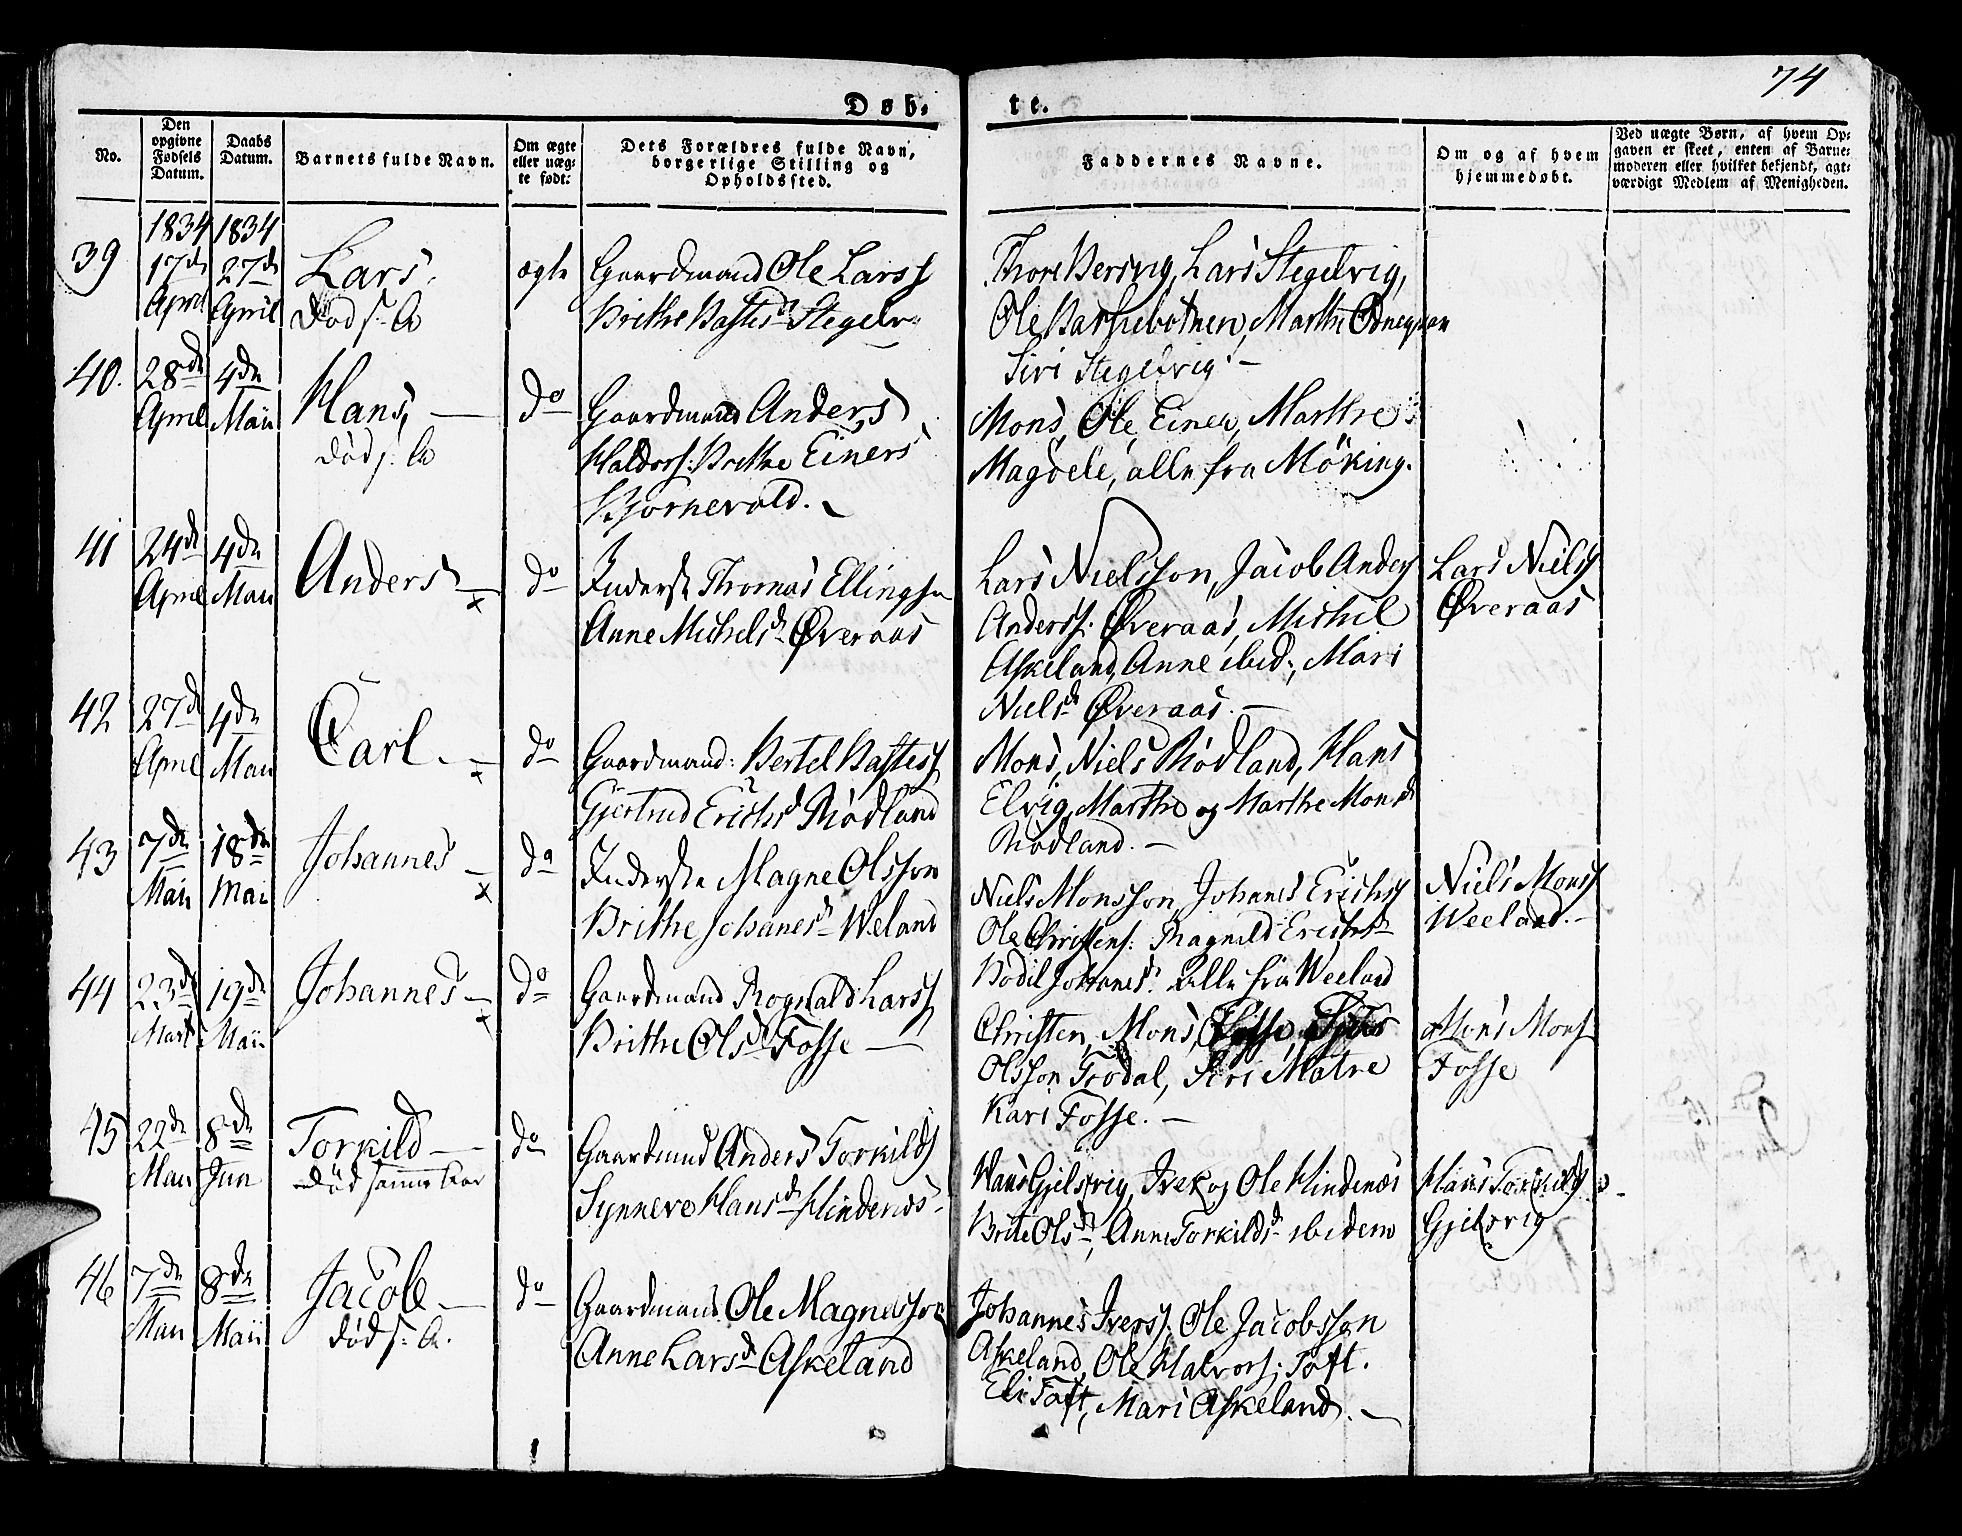 74
Døb, te.
No.
Den opgivne Fødsels Datum.
Daabs Datum.
Barnets fulde Navn.
Om ægte eller uæg- te født:
Dets Forældres fulde Navn, borgerlige Stilling og Opholdssted.
Faddernes Navne.
Om og af hvem hjemmedøbt.
Ved uægte Børn, af hvem Op- gaven er skeet, enten af Barne- moderen eller hvilket bekjendt, agt- værdigt Medlem af Menigheden.
1834 1834
39 17de 27de Lars ægte Gaardmand Ole Larss
April April Død s: A Brithe Bastesd
Lars Stegelvig,
Ole Marthe
Siri Stegelvig. —
40. 28de 4de Hans, — do Gaardmand Anders
April Maii død s: A Haldors: Brithe Einers
Bjørnevold. —
Mons, Ole, Einer, Marthe
Magdele, alle fra Møking.
41 24de 4de Anders — x do Inderst Thomas Ellingsen
April Maii Anne Michelsd Øveraas
Lars Nielsson, Jacob Anders
Anderss: Øveraas, Michil
Askeland, Anne ibid:, Mari
Nielsd Øveraas. —
Lars Nielss
Øveraas
42 27de 4de Carl — x do Gaardmand: Bertel Bastess
April Maii Gjertrud Erichsd Rødland
Mons, Niels Rødland, Hans
Elvig, Marthe og Marthe Monsd
Rødland. —
43 7de 18de Johannes — x do Inderste Magne Olsson
Maii Maii Brithe Johanesd Weland
Niels Monsson, Johanes Erichss
Ole Christens: Ragnild Erichsd
Bodil Johanesd: alle fra Weeland
Niels Monss
Weeland. —
44 23de 19de Johannes — x do Gaardmand Rognald Larss
Marts Maii Brithe Olsd Fosse —
Christen, Mons,
Olsson Trodal, Siri Matre
Kari Fosse. —
Mons Monss
Fosse
45 22de 8de Torkild — do Gaardmand Anders Torkilds
Maii Jun død samme Aar Synneve Hansd Hindenes
Hans Gjelsvig, Iver og Ole Hindenes
Brite Olsd, Anne Torkildsd ibidem
Hans Torkilds
Gjelsvig
46 7de 8de Jacob — do Gaardmand Ole Magnesson
Maii Maii død s: A. Anne Larsd Askeland
Johannes Iverss: Ole Jacobsson
Askeland, Ole Halvors: Toft.
Eli Toft, Mari Askeland. —